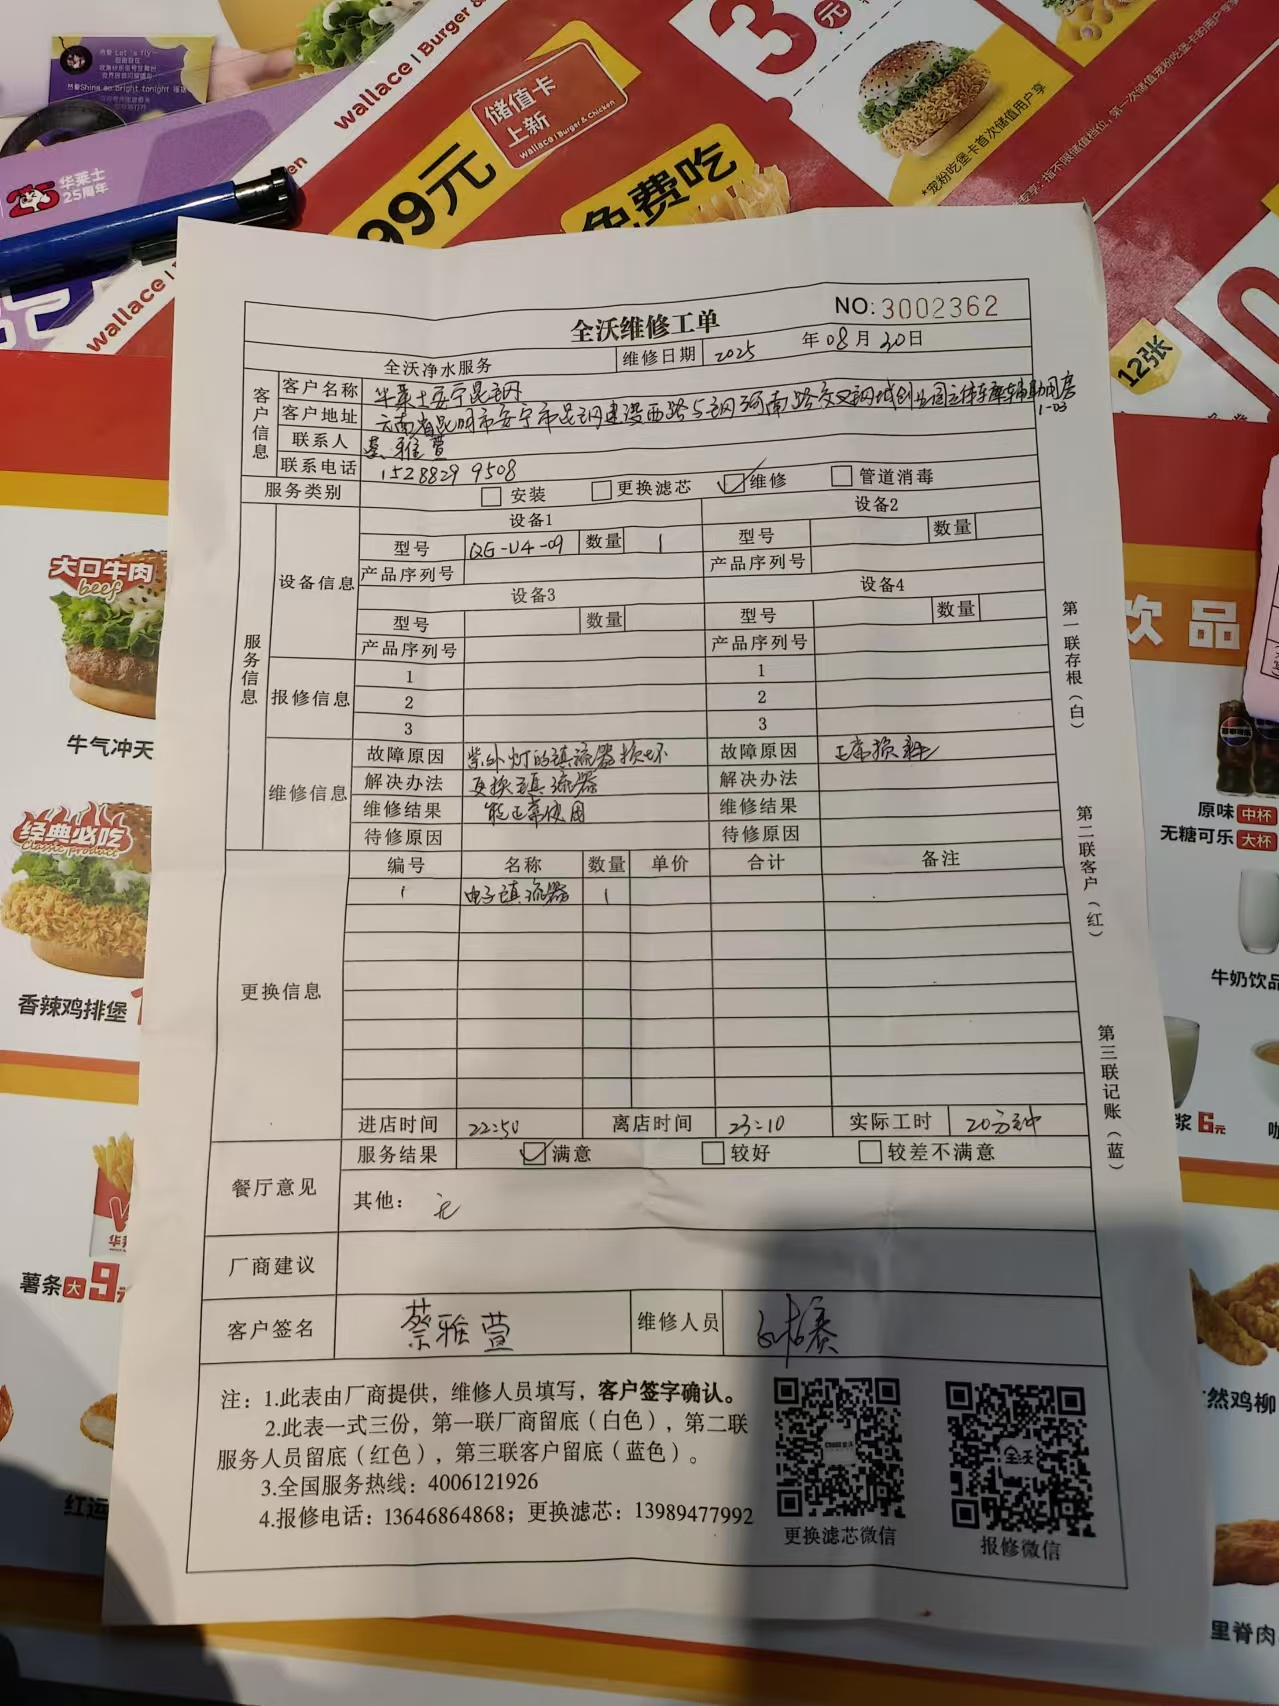 Let's fly~
Shine so bright tonight
华莱士
25周年
wallace | Burger &
储值卡
上新
wallace | Burger & Chicken
99元
免费吃
3元
*宠粉吃堡卡首次储值用户享
12张
wallace
大口牛肉
beef
牛气冲天
经典必吃
Classic products
香辣鸡排堡
薯条 大 9元
红运
饮品
原味 中杯
无糖可乐 大杯
牛奶饮品
浆 6元
然鸡柳
里脊肉
全沃维修工单
NO: 3002362
全沃净水服务 维修日期 2025 年 08 月 30 日
客户信息
客户名称 华莱士安宁昆钢
客户地址 云南省昆明市安宁市昆钢建设西路与钢河南路交叉钢城创业园 1-03
联系人 蔡雅萱
联系电话 15288299508
服务类别 安装 更换滤芯 维修 管道消毒
服务信息
设备信息
设备1 设备2
型号 QG-U4-09 数量 1 型号 数量
产品序列号 产品序列号
设备3 设备4
型号 数量 型号 数量
产品序列号 产品序列号
报修信息
1 1
2 2
3 3
维修信息
故障原因 紫外灯的镇流器损坏 故障原因 正常损耗
解决办法 更换镇流器 解决办法
维修结果 能正常使用 维修结果
待修原因 待修原因
更换信息
编号 名称 数量 单价 合计 备注
1 电子镇流器 1
进店时间 22:50 离店时间 23:10 实际工时 20分钟
餐厅意见
服务结果 满意 较好 较差不满意
其他： 无
厂商建议
客户签名 蔡雅萱 维修人员
注：1.此表由厂商提供，维修人员填写，客户签字确认。
2.此表一式三份，第一联厂商留底（白色），第二联
服务人员留底（红色），第三联客户留底（蓝色）。
3.全国服务热线：4006121926
4.报修电话：13646864868；更换滤芯：13989477992
更换滤芯微信
全沃
报修微信
第一联存根（白）
第二联客户（红）
第三联记账（蓝）